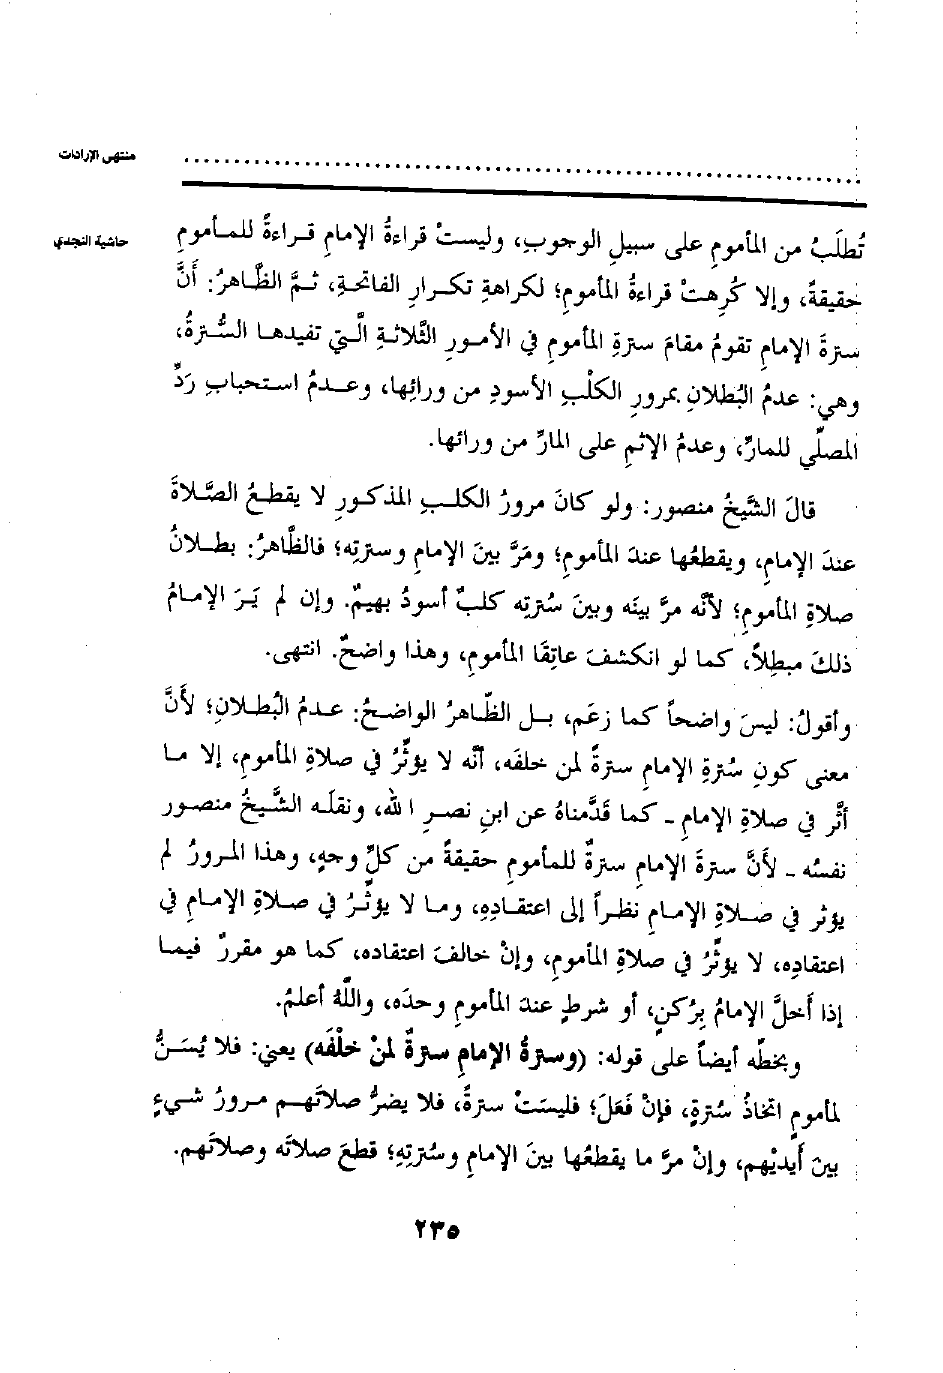 منتهى الإرادات
حاشية النجدي
تُطلَبُ من المأمومِ على سبيلِ الوجوبِ، وليستْ قراءةُ الإمامِ قراءةً للمأمومِ
حقيقةً، وإلا كُرِهتْ قراءةُ المأمومِ؛ لكراهةِ تكرارِ الفاتحةِ، ثمَّ الظَّاهرُ: أنَّ
سترةَ الإمامِ تقومُ مقامَ سترةِ المأمومِ في الأمورِ الثَّلاثةِ الَّتي تفيدها السُّترةُ،
وهي: عدمُ البُطلانِ بمرورِ الكلْبِ الأسودِ من ورائِها، وعدمُ استحبابِ ردِّ
المصلِّي للمارِّ، وعدمُ الإثمِ على المارِّ من ورائها.
قالَ الشَّيخُ منصور: ولو كانَ مرورُ الكلبِ المذكورِ لا يقطعُ الصَّلاةَ
عندَ الإمامِ، ويقطعُها عندَ المأمومِ؛ ومَرَّ بينَ الإمامِ وسترتِه؛ فالظَّاهرُ: بطلانُ
صلاةِ المأمومِ؛ لأنَّه مرَّ بينَه وبينَ سُترتِه كلبٌ أسودُ بهيمٌ. وإن لم يَرَ الإمامُ
ذلكَ مبطِلاً، كما لو انكشفَ عاتِقَا المأمومِ، وهذا واضحٌ. انتهى.
وأقولُ: ليسَ واضحاً كما زعَم، بل الظَّاهرُ الواضحُ: عدمُ البُطلانِ؛ لأنَّ
معنى كونِ سُترةِ الإمامِ سترةً لمن خلفَه، أنَّه لا يؤثِّرُ في صلاةِ المأمومِ، إلا ما
أثَّر في صلاةِ الإمامِ ـ كما قدَّمناهُ عن ابنِ نصرِ الله، ونقلَه الشَّيخُ منصور
نفسُه ـ لأنَّ سترةَ الإمامِ سترةٌ للمأمومِ حقيقةً من كلِّ وجهٍ، وهذا المرورُ لم
يؤثر في صلاةِ الإمامِ نظراً إلى اعتقادِهِ، وما لا يؤثِّرُ في صلاةِ الإمامِ في
اعتقادِه، لا يؤثِّرُ في صلاةِ المأمومِ، وإنْ خالفَ اعتقاده، كما هو مقررٌ فيما
إذا أخلَّ الإمامُ بِرُكنٍ، أو شرطٍ عندَ المأمومِ وحدَه، واللَّهُ أعلمُ.
وبخطِّه أيضاً على قوله: (وسترةُ الإمامِ سترةٌ لمنْ خلْفَه) يعني: فلا يُسَنُّ
لمأمومٍ اتخاذُ سُترةٍ، فإنْ فَعَلَ؛ فليسَتْ سترةً، فلا يضرُّ صلاتَهم مرورُ شيءٍ
بينَ أيديْهم، وإنْ مرَّ ما يقطعُها بينَ الإمامِ وسُترتِهِ؛ قطعَ صلاتَه وصلاتَهم.
٢٣٥